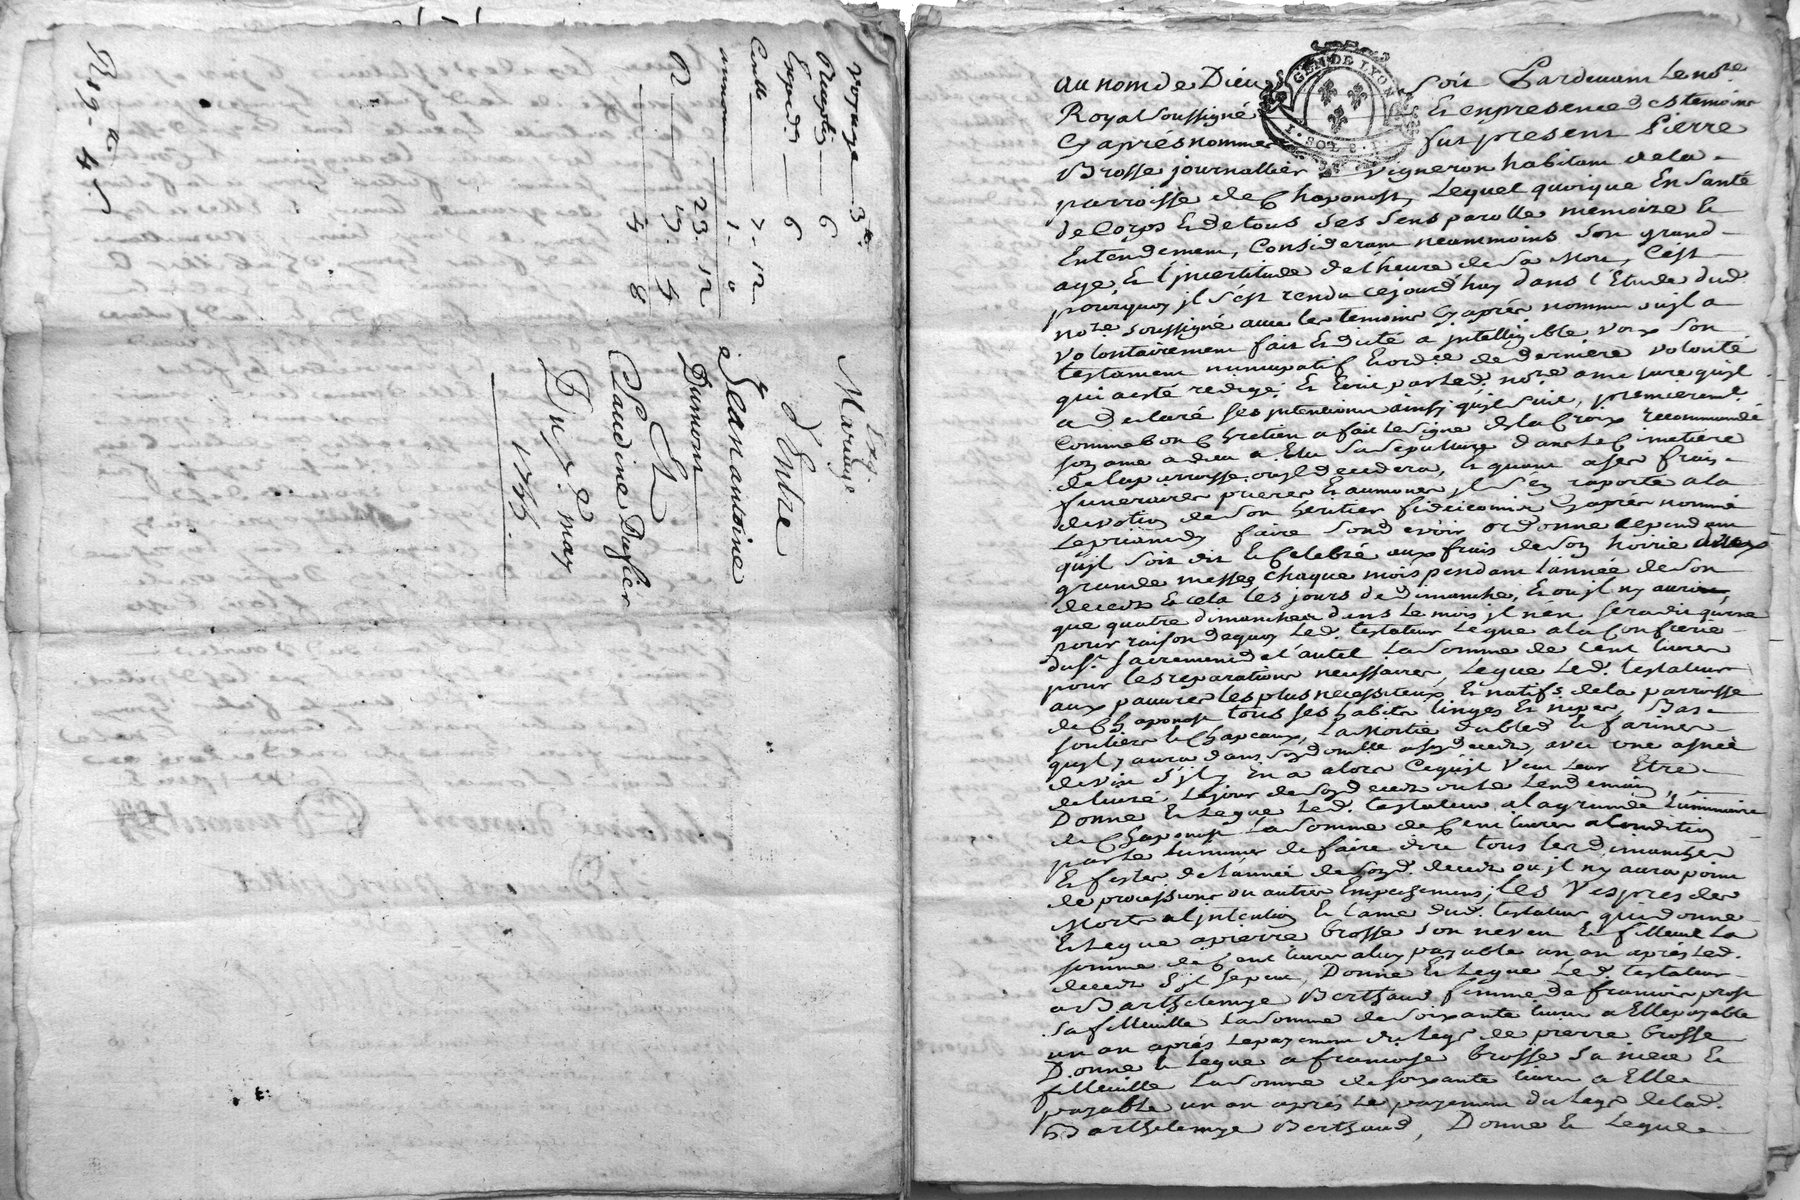 voyage 3
6
Exped. 6
Conlle 7 - 12
1 - 0
23. 12
R 15. 4
4 8
R 19. 4
Mariage
d'Entre
Jean antoine
Dumons
Et
Claudine Duflier
Du 7e may
1766.
GEN DE LYON
1. SOL 8
au nom de Dieu Soit Pardevant Le nore
Royal Soussigné Et en presence des temoins
Cy aprés nommes fut present Pierre
Brosse journallier Vigneron habitant de la
parroisse de Chaponost, Lequel quoique En Santé
de Corps Et de tous Ses Sens parolle memoire Et
Entendement, Considerant neanmoins Son grand
age, Et l'jncertitude de l'heure de Sa Mort, C'est
pourquoy jl s'est rendu cejourd'huy dans l'Etude dud.
nore soussigné avec les temoins Cy aprés nommés ou jl a
Volontairement fait Et dicté a jntelligible voix Son
testament nuncupatif Et ordce de derniere volonté
qui a esté redigé Et Ecrit par led. nore a mesure qu'jl
a declaré Ses jntentions ainsy qu'jl suit, premierement
Comme bon Chretien a fait le signe de la Croix recommandé
son ame a dieu a Elu Sa Sepulture dans le Cimetiere
de la parroisse ou jl decedera, Et quant a ses frais
funeraires prieres Et aumones jl s'en raporte a la
devotion de Son heritier fideicomis Cy aprés nommé
Le priant dy faire Son devoir ordonne cependant
qu'jl soit dit Et Celebré aux frais de Son hoirie
grande messes chaque mois pendant l'année de Son
decedz Et cela les jours de dimanche, Et ou jl ny auroit
que quatre dimanches dans Le mois jl n'en sera dit qu'une
pour raison dequoy Led. testateur Legue a la Confrerie
du St. Sacrement de l'autel La Somme de Cent livres
pour les reparations necessaires, Legue Led. testateur
aux pauvres les plus necessiteux Et natifs de la parroisse
de Chaponost tous ses habits linges Et nipes, Bas
souliers Et Chapeaux, La Moitié du bled Et farines
qu'jl y aura dans Son domicille a son decedz, avec une asnée
de vin s'jl y En a alors Ce qu'jl Veut leur Etre
delivré Le jour de Son decedz ou le Lendemain,
Donne Et Legue Led. testateur a la grande Luminaire
de Chaponost La Somme de Cent livres a Condition
par Le luminier de faire dire tous les dimanches
Et festes de l'année de Sond. decedz ou jl n'y aura point
de processions ou autres Empechemens, Les Vespres des
Morts a l'jntention Et l'ame dud. testateur qui donne
Et Legue a pierre brosse Son neveu Et filleul La
somme de Cent livres a luy payable un an aprés Led.
decedz s'jl se peut, Donne Et Legue Led. testateur
a Barthelemye Berthaud femme de francois
Sa filleuille La Somme de Soixante livres a Elle payable
un an aprés Le payement du Legs de pierre brosse
Donne Et Legue a francoise brosse Sa niece Et
filleuille La Somme de soixante livres a Elle
payable un an aprés Le payement du Legs de lad.
Barthelemye Berthaud, Donne Et Legue